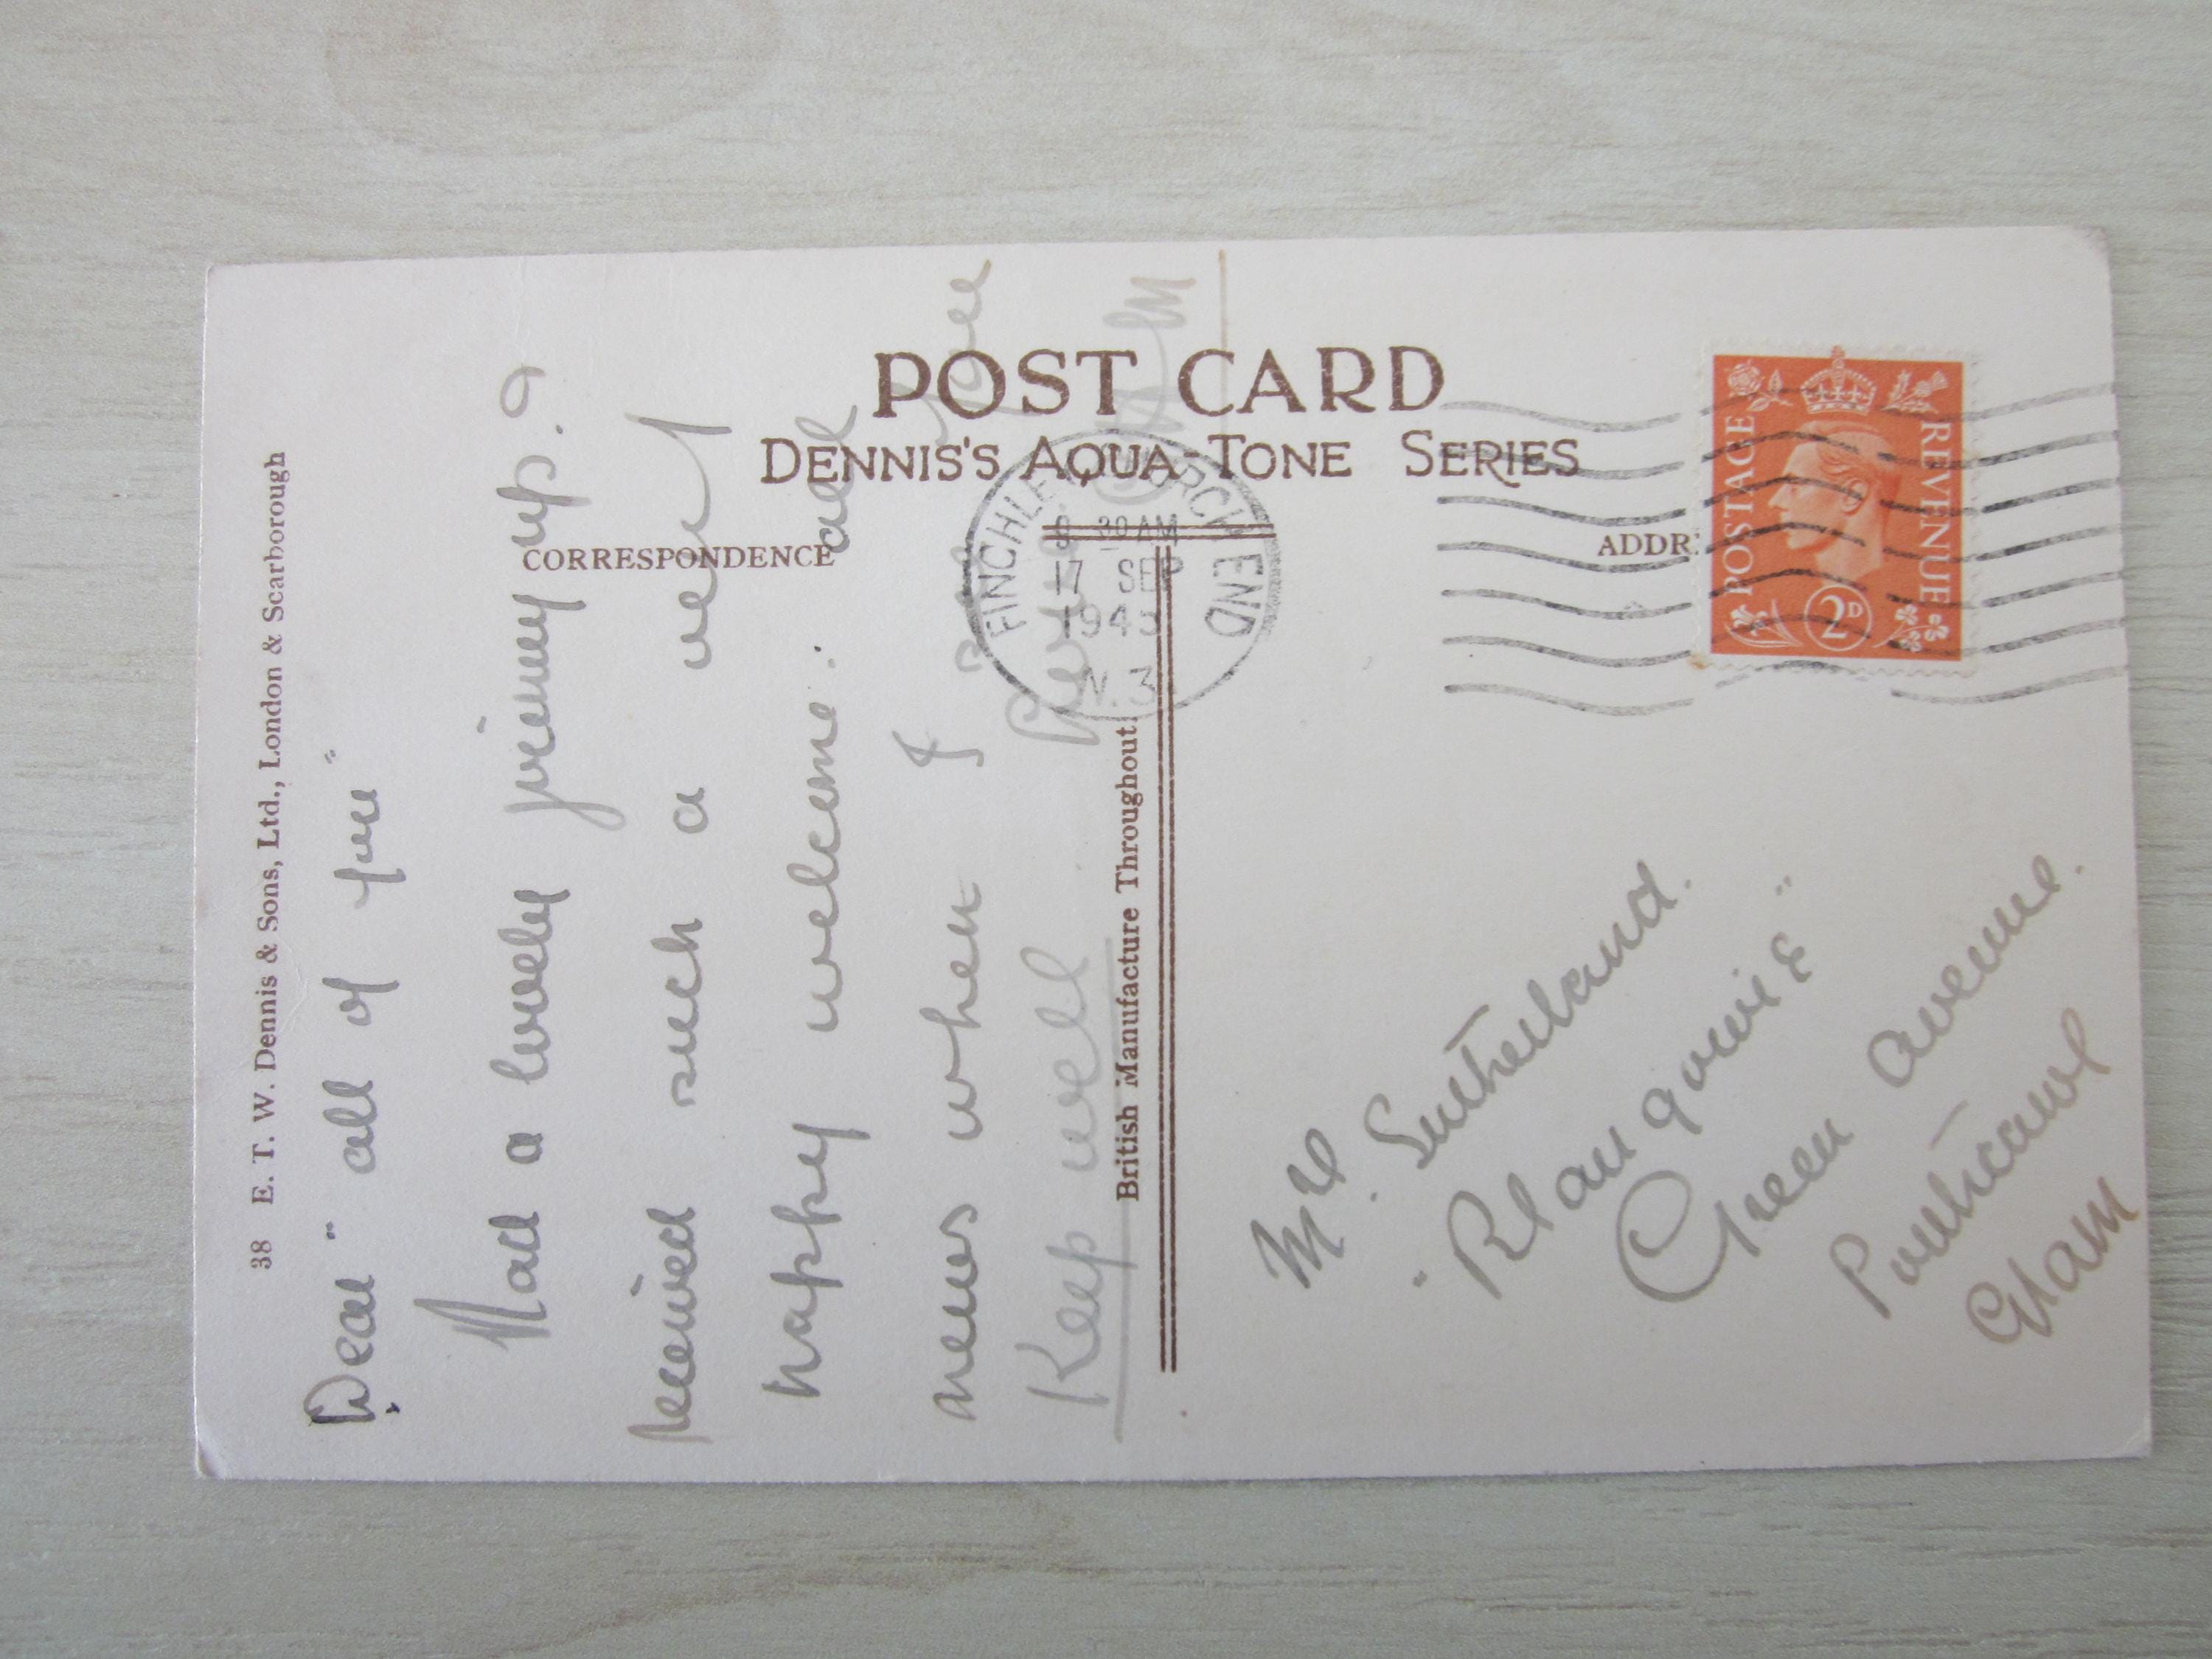 38 E. T. W. Dennis & Sons, Ltd., London & Scarborough
POST CARD
DENNIS'S AQUA-TONE SERIES
CORRESPONDENCE
ADDR
British Manufacture Throughout.
POSTAGE
REVENUE
2D
FINCHLEY CHURCH END
8 30 AM
17 SEP
194
N.3
Dear "all of you"
Had a lovely journey up. &
received such a very
happy welcome. all
news when I see
Keep well
Mr. Sutherland.
Green Avenue.
Porthcawl
Glam